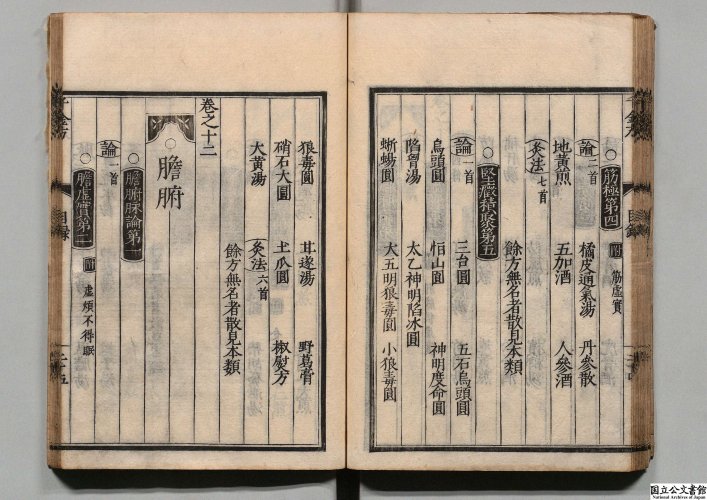 筋極第四 附 筋虛實
論 二首 橘皮通氣湯 丹參散
地黃煎 五加酒 人參酒
灸法 七首 餘方無名者散見本類
堅癥積聚第五
論 一首 三台圓 五石烏頭圓
烏頭圓 恒山圓 神明度命圓
陷胷湯 太乙神明陷冰圓
蜥蜴圓 大五明狼毒圓 小狼毒圓
狼毒圓 甘遂湯 野葛膏
硝石大圓 土瓜圓 椒熨方
大黃湯 灸法 六首
餘方無名者散見本類
卷之十二
膽腑
膽腑脉論第一
論 一首
膽虛實第二 附 虛煩不得眠
目錄
目錄
国立公文書館
National Archives of Japan